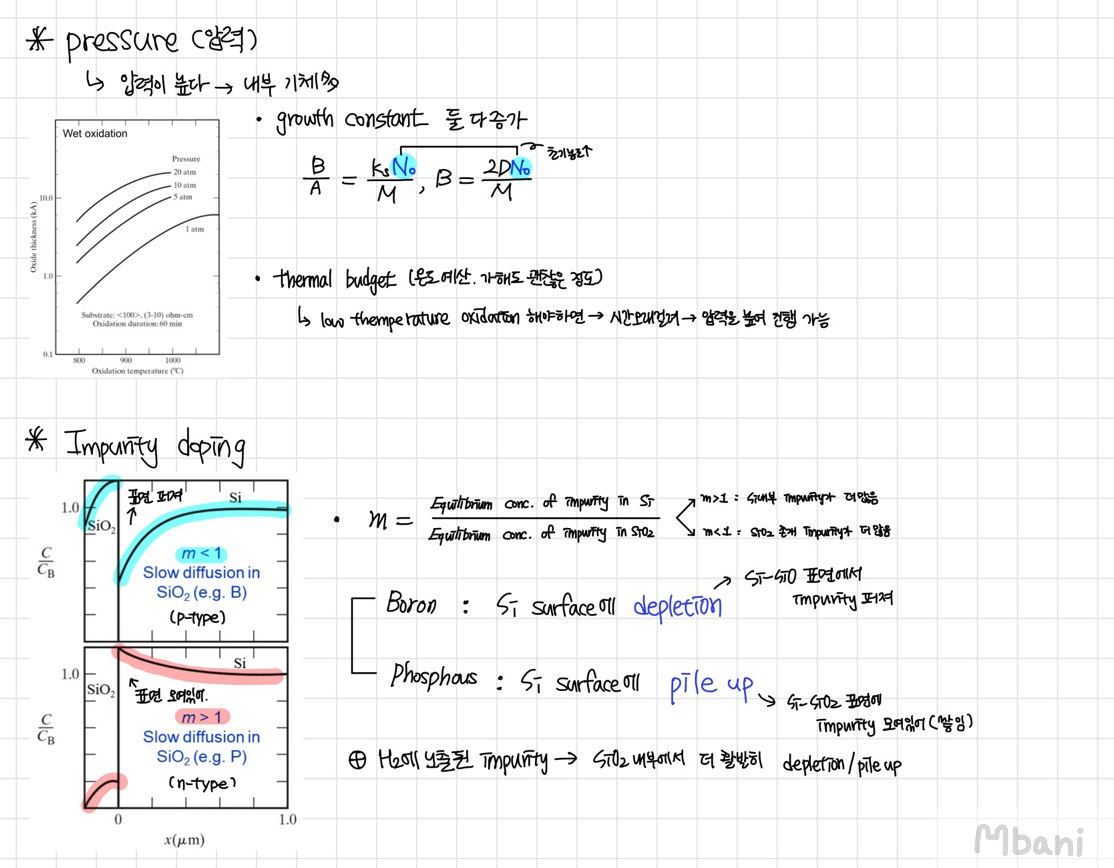 * pressure (압력)
↳ 압력이 높다 → 내부 기체多
Wet oxidation
Pressure
20 atm
10 atm
5 atm
1 atm
10.0
1.0
0.1
Oxide thickness (kA)
Substrate: <100>, (3-10) ohm-cm
Oxidation duration: 60 min
800 900 1000
Oxidation temperature (°C)
• growth constant 둘 다 증가
초기농도↑
B/A = KsNo/M , B = 2DNo/M
• thermal budget (온도예산. 가해도 괜찮은 정도)
↳ low themperature oxidation 해야하면 → 시간오래걸려 → 압력을 높여 진행 가능
* Impurity doping
1.0
C/CB
SiO2
표면 퍼져
Si
m < 1
Slow diffusion in
SiO2 (e.g. B)
(p-type)
1.0
C/CB
SiO2
Si
표면 모여있어.
m > 1
Slow diffusion in
SiO2 (e.g. P)
(n-type)
0 1.0
x(μm)
• m = Equilibrium conc. of impurity in Si / Equilibrium conc. of impurity in SiO2
m>1 : Si내부 impurity가 더 많음
m<1 : SiO2 존재 impurity가 더 많음
Boron : Si surface에 depletion
→ Si-SiO 표면에서
impurity 퍼져
Phosphous : Si surface에 pile up
↘ Si-SiO2 표면에
impurity 모여있어 (쌓임)
⊕ H2에 노출된 impurity → SiO2 내부에서 더 활발히 depletion/pile up
Mbani